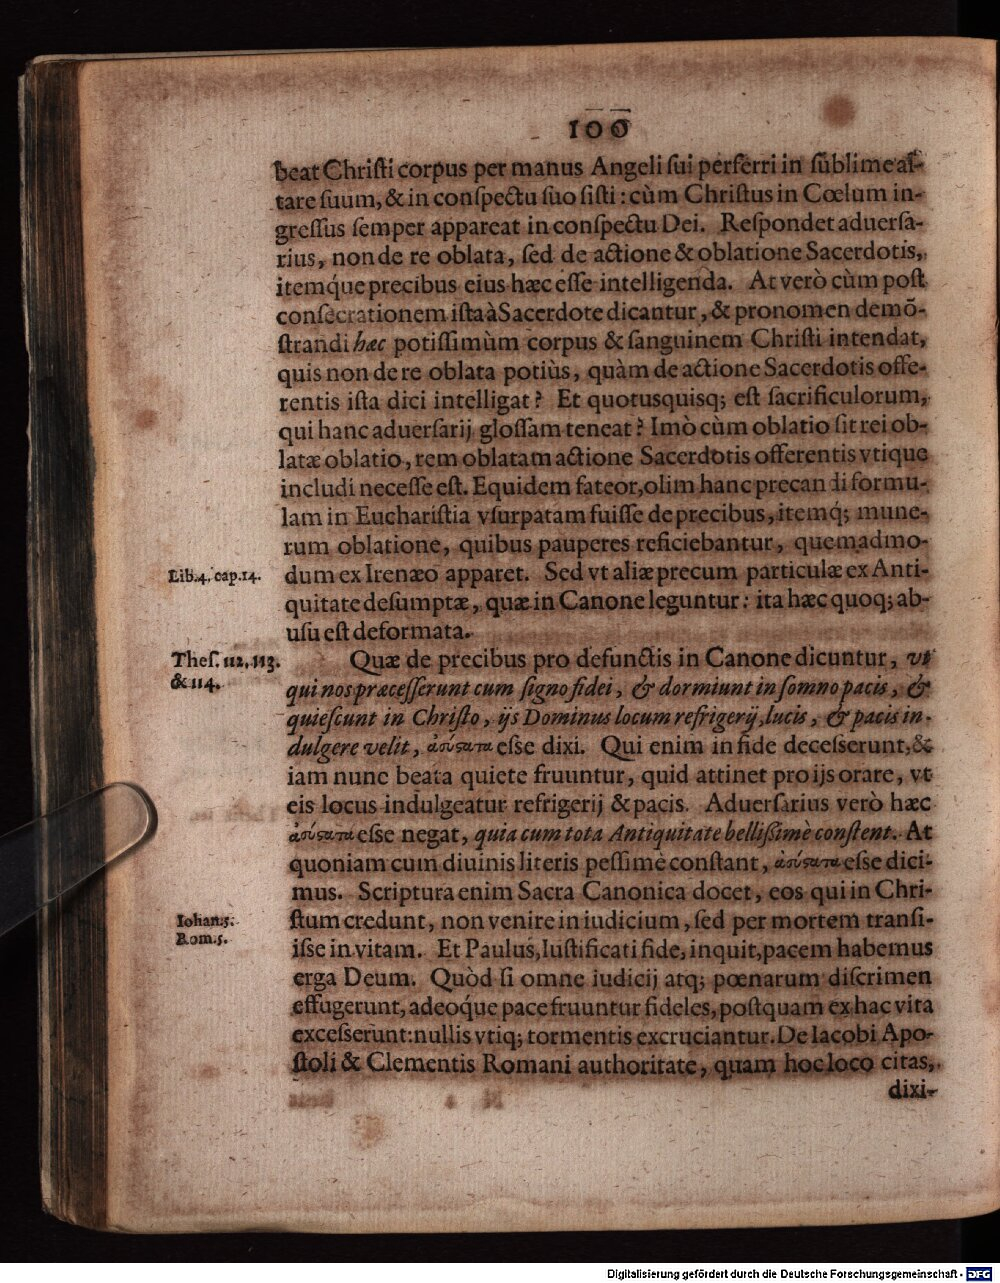 100
beat Chriſti corpus per manus Angeli ſui perferri in ſublime al-
tare ſuum, & in conſpectu ſuo ſiſti: cùm Chriſtus in Cœlum in-
greſſus ſemper appareat in conſpectu Dei. Reſpondet aduerſa-
rius, non de re oblata, ſed de actione & oblatione Sacerdotis,
itemq́ue precibus eius hæc eſſe intelligenda. At verò cùm poſt
conſecrationem iſta à Sacerdote dicantur, & pronomen demõ-
ſtrandi hæc potiſſimùm corpus & ſanguinem Chriſti intendat,
quis non de re oblata potiùs, quàm de actione Sacerdotis offe-
rentis iſta dici intelligat? Et quotusquisq; eſt ſacrificulorum,
qui hanc aduerſarij gloſſam teneat? Imò cùm oblatio ſit rei ob-
latæ oblatio, rem oblatam actione Sacerdotis offerentis vtique
includi neceſſe eſt. Equidem fateor, olim hanc precandi formu-
lam in Euchariſtia vſurpatam fuiſſe de precibus, itemq́; mune-
rum oblatione, quibus pauperes reficiebantur, quemadmo-
Lib. 4. cap. 14.
dum ex Irenæo apparet. Sed vt aliæ precum particulæ ex Anti-
quitate deſumptæ, quæ in Canone leguntur: ita hæc quoq; ab-
uſu eſt deformata.
Theſ. 112. 113.
& 114.
Quæ de precibus pro defunctis in Canone dicuntur, vt
qui nos præceſſerunt cum ſigno fidei, & dormiunt in ſomno pacis, &
quieſcunt in Chriſto, ijs Dominus locum refrigerij, lucis, & pacis in-
dulgere velit, ἀσύςατα eſſe dixi. Qui enim in fide deceſſerunt, &
iam nunc beata quiete fruuntur, quid attinet pro ijs orare, vt
eis locus indulgeatur refrigerij & pacis. Aduerſarius verò hæc
ἀσύςατα eſſe negat, quia cum tota Antiquitate belliſſimè conſtent. At
quoniam cum diuinis literis peſſimè conſtant, ἀσύςατα eſſe dici-
mus. Scriptura enim Sacra Canonica docet, eos qui in Chri-
Iohan. 5.
Rom. 5.
ſtum credunt, non venire in iudicium, ſed per mortem tranſi-
iſſe in vitam. Et Paulus, Iuſtificati fide, inquit, pacem habemus
erga Deum. Quòd ſi omne iudicij atq; pœnarum diſcrimen
effugerunt, adeoq́ue pace fruuntur fideles, poſtquam ex hac vita
exceſſerunt: nullis vtiq; tormentis excruciantur. De Iacobi Apo-
ſtoli & Clementis Romani authoritate, quam hoc loco citas,
dixi-
Digitalisierung gefördert durch die Deutsche Forschungsgemeinschaft - DFG